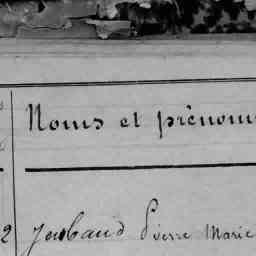 Noms et prénom
2 Jeubaud Pierre Marie